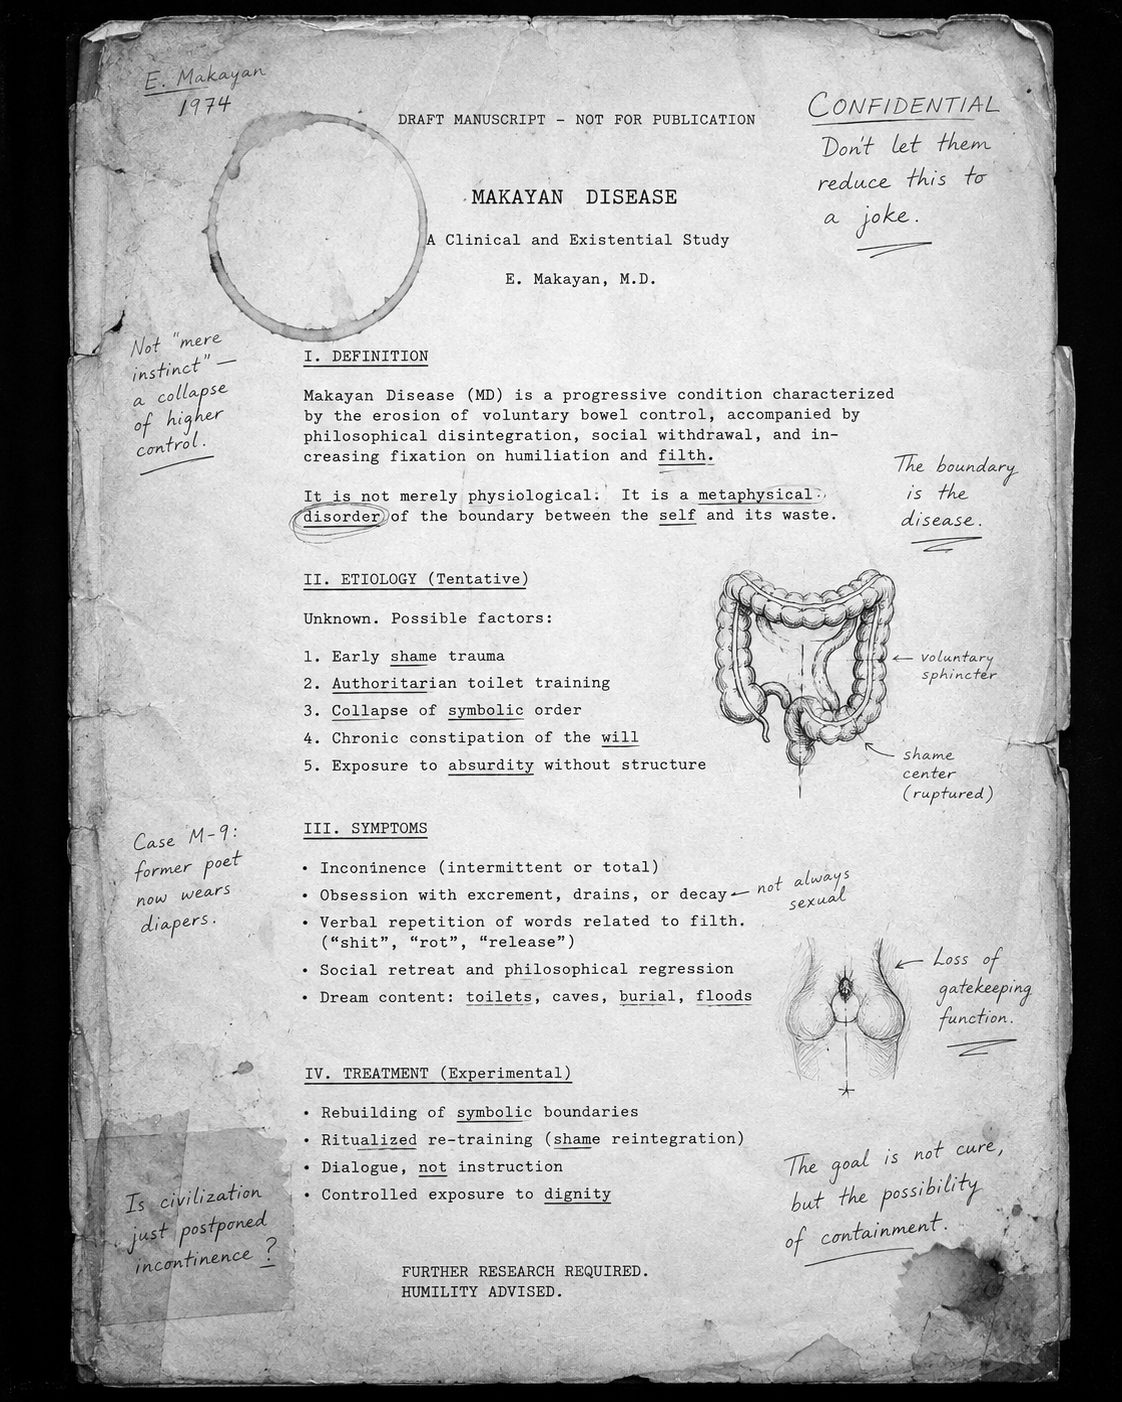 E. Makayan
1974
DRAFT MANUSCRIPT – NOT FOR PUBLICATION
CONFIDENTIAL
Don't let them
reduce this to
a joke.
MAKAYAN DISEASE
A Clinical and Existential Study
E. Makayan, M.D.
Not "mere
instinct" —
a collapse
of higher
control.
I. DEFINITION
Makayan Disease (MD) is a progressive condition characterized
by the erosion of voluntary bowel control, accompanied by
philosophical disintegration, social withdrawal, and in-
creasing fixation on humiliation and filth.
The boundary
is the
disease.
It is not merely physiological. It is a metaphysical
disorder of the boundary between the self and its waste.
II. ETIOLOGY (Tentative)
Unknown. Possible factors:
1. Early shame trauma
2. Authoritarian toilet training
3. Collapse of symbolic order
4. Chronic constipation of the will
5. Exposure to absurdity without structure
voluntary
sphincter
shame
center
(ruptured)
III. SYMPTOMS
Case M-9:
former poet
now wears
diapers.
• Inconinence (intermittent or total)
• Obsession with excrement, drains, or decay
not always
sexual
• Verbal repetition of words related to filth.
(“shit”, “rot”, “release”)
• Social retreat and philosophical regression
• Dream content: toilets, caves, burial, floods
Loss of
gatekeeping
function.
IV. TREATMENT (Experimental)
• Rebuilding of symbolic boundaries
• Ritualized re-training (shame reintegration)
• Dialogue, not instruction
• Controlled exposure to dignity
Is civilization
just postponed
incontinence?
The goal is not cure,
but the possibility
of containment.
FURTHER RESEARCH REQUIRED.
HUMILITY ADVISED.